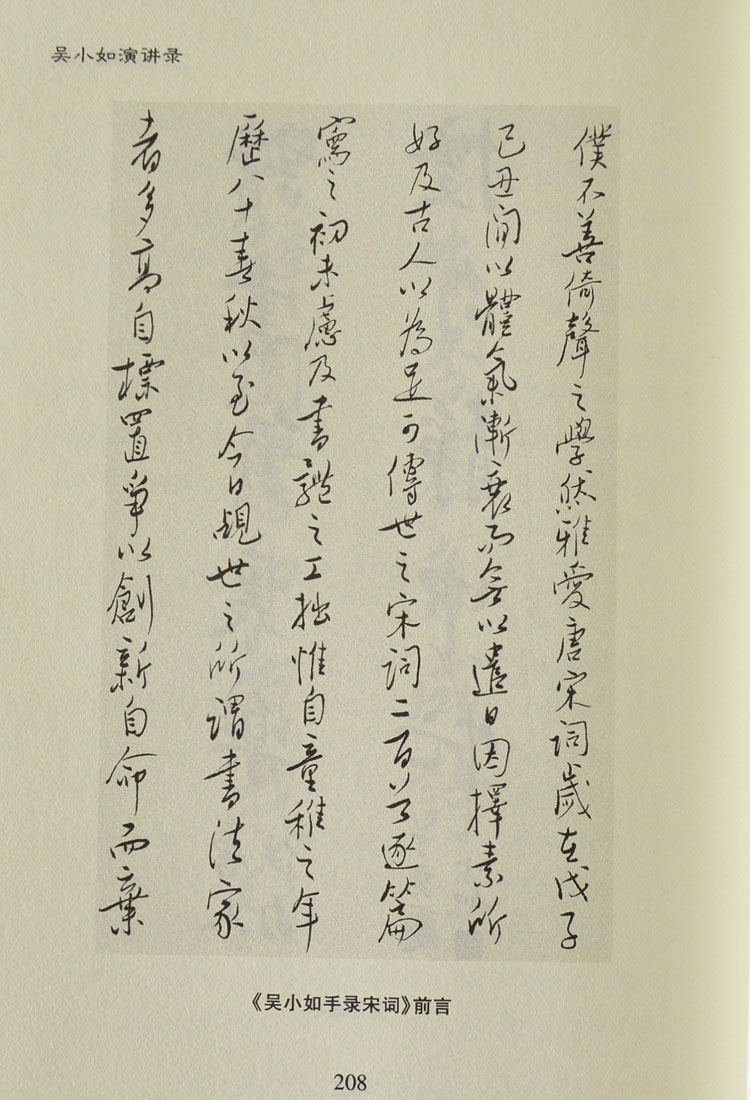 吴小如演讲录
僕不善倚聲之學然雅愛唐宋詞歲在戊子
己丑間以體氣漸衰而無以遣日因擇素所
好及古人以為足可傳世之宋詞二百首逐篇
寫之初未慮及書藝之工拙惟自童稚之年
歷八十春秋以至今日覩世之所謂書法家
者多高自標置爭以創新自命而棄
《吴小如手录宋词》前言
208